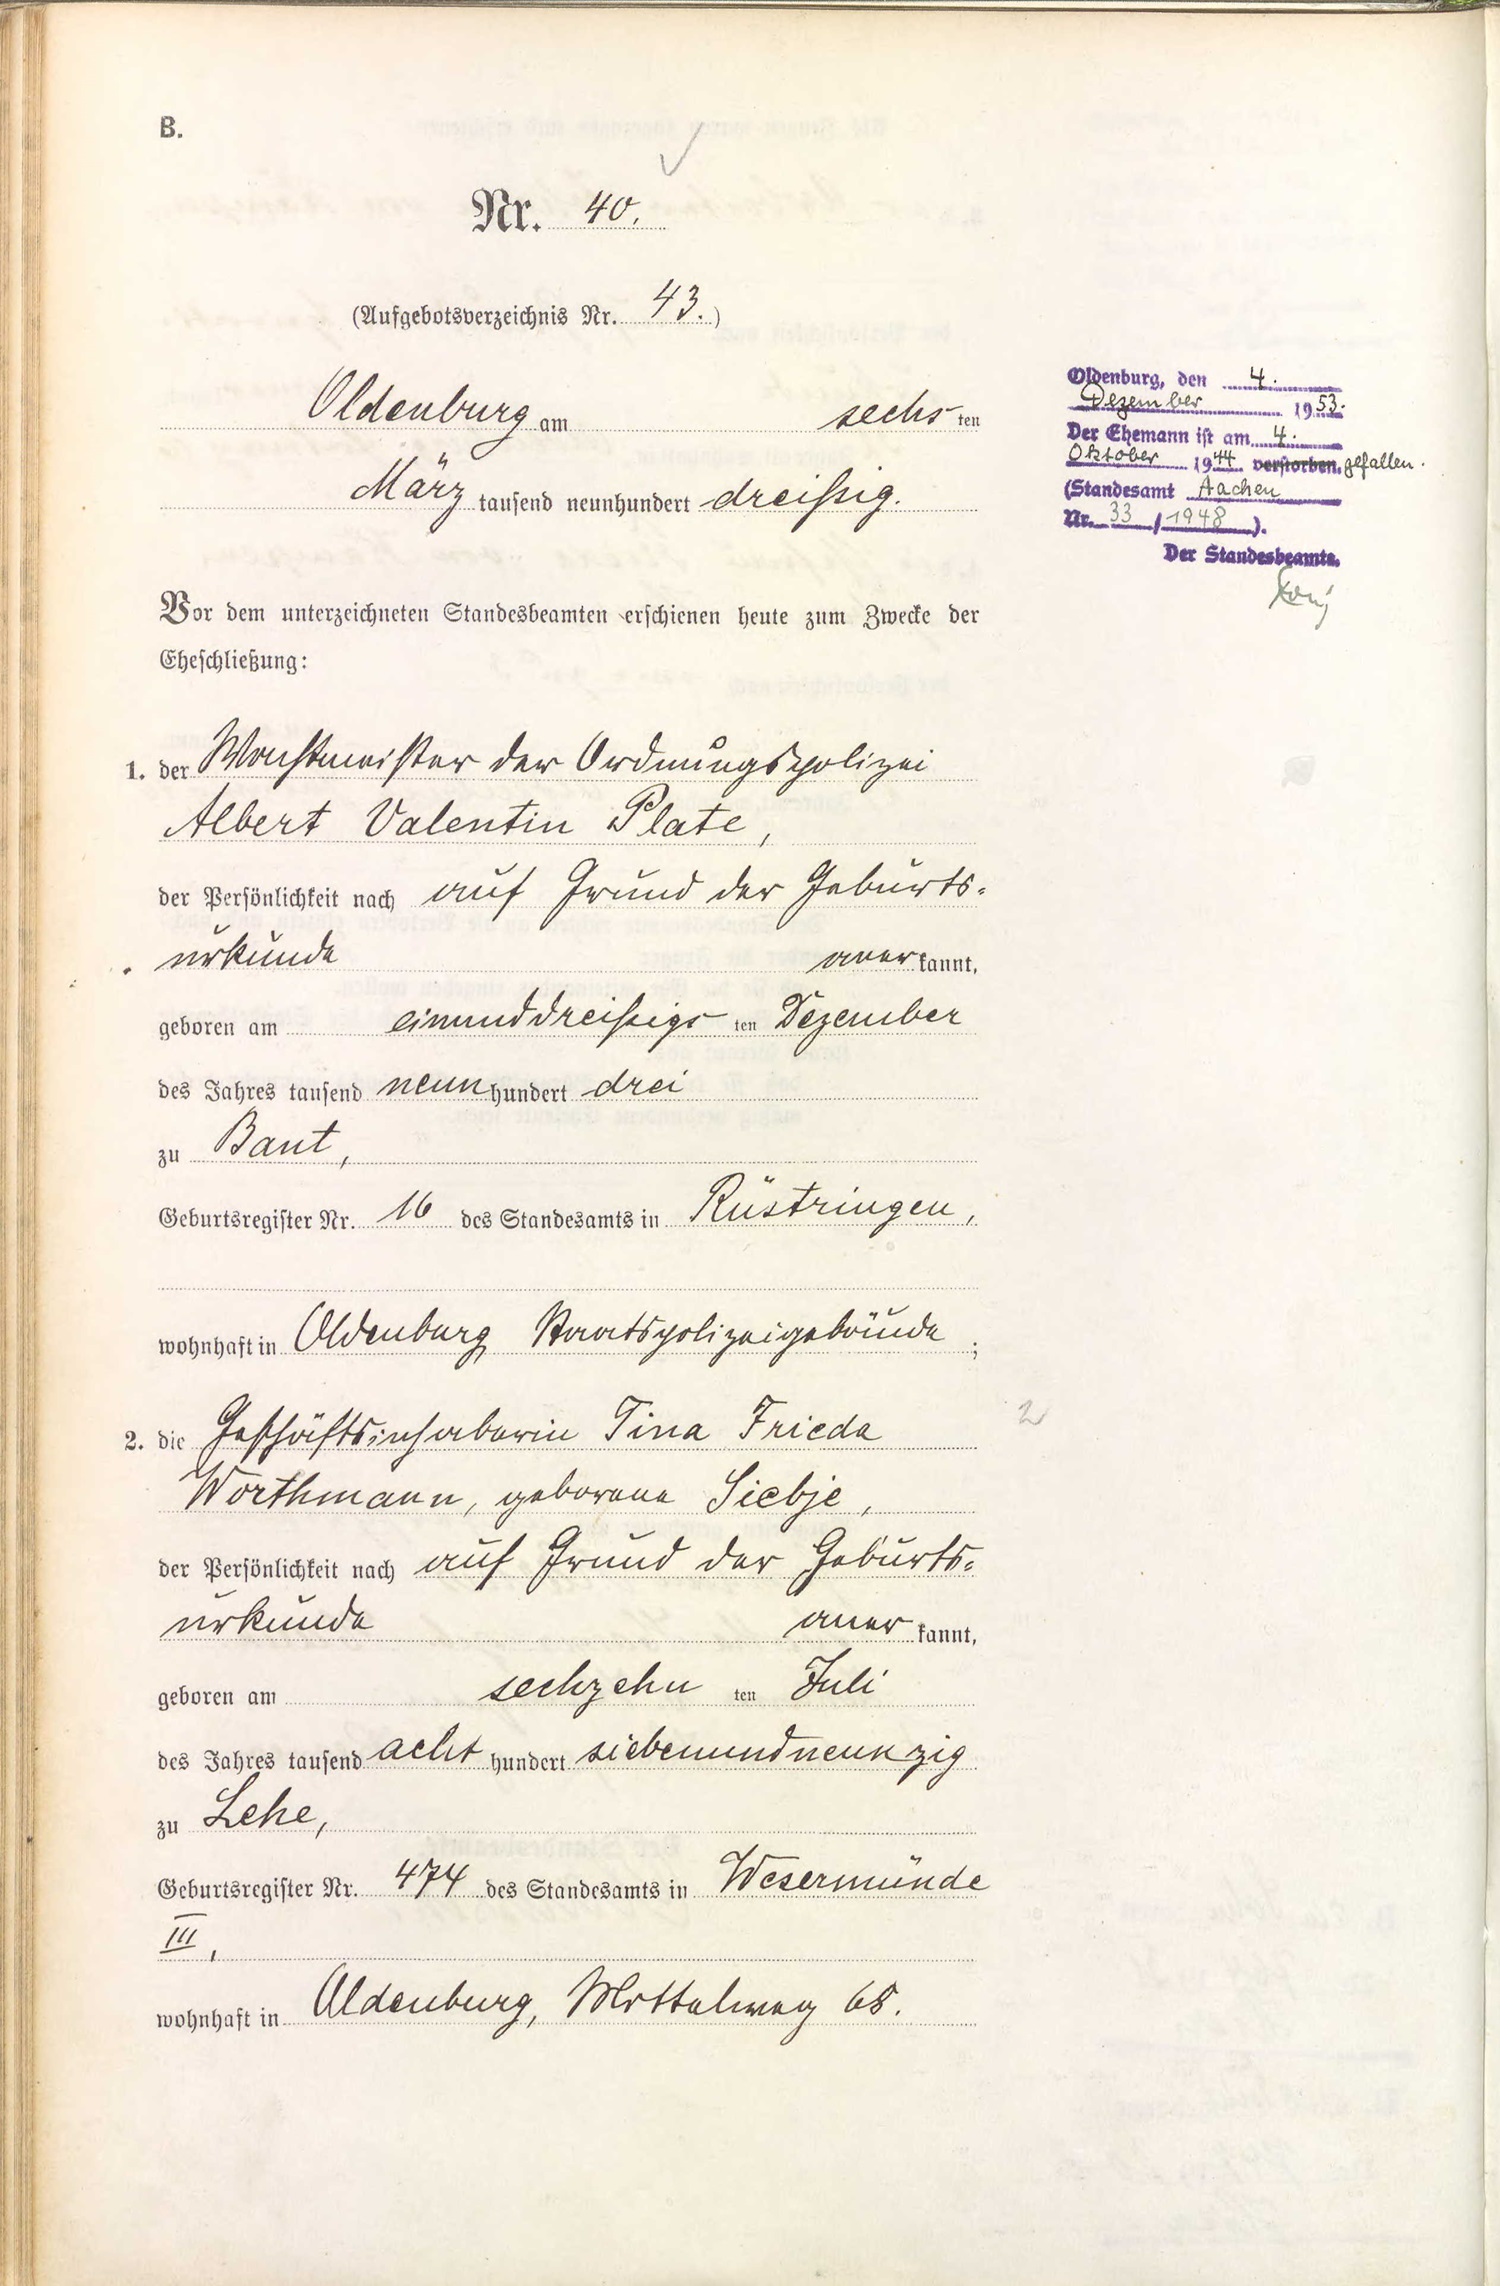 B.
Nr. 40.
(Aufgebotsverzeichnis Nr. 43.)
Oldenburg am sechs ten
März tausend neunhundert dreißig.
Vor dem unterzeichneten Standesbeamten erschienen heute zum Zwecke der
Eheschließung:
1. der Wachtmeister der Ordnungspolizei
Albert Valentin Plate,
der Persönlichkeit nach auf Grund der Geburts-
urkunde aner kannt,
geboren am einunddreißigs ten Dezember
des Jahres tausend neun hundert drei
zu Bant,
Geburtsregister Nr. 16 des Standesamts in Rüstringen,
wohnhaft in Oldenburg Staatspolizeigebäude;
2. die Geschäftsinhaberin Tina Frieda
Worthmann, geborene Siebje,
der Persönlichkeit nach auf Grund der Geburts-
urkunde aner kannt,
geboren am sechzehn ten Juli
des Jahres tausend acht hundert siebenundneunzig
zu Lehe,
Geburtsregister Nr. 474 des Standesamts in Wesermünde
III,
wohnhaft in Oldenburg, Mittelweg 68.
Oldenburg, den 4.
Dezember 1953.
Der Ehemann ist am 4.
Oktober 1944 verstorben. gefallen.
(Standesamt Aachen
Nr. 33 / 1948).
Der Standesbeamte.
2